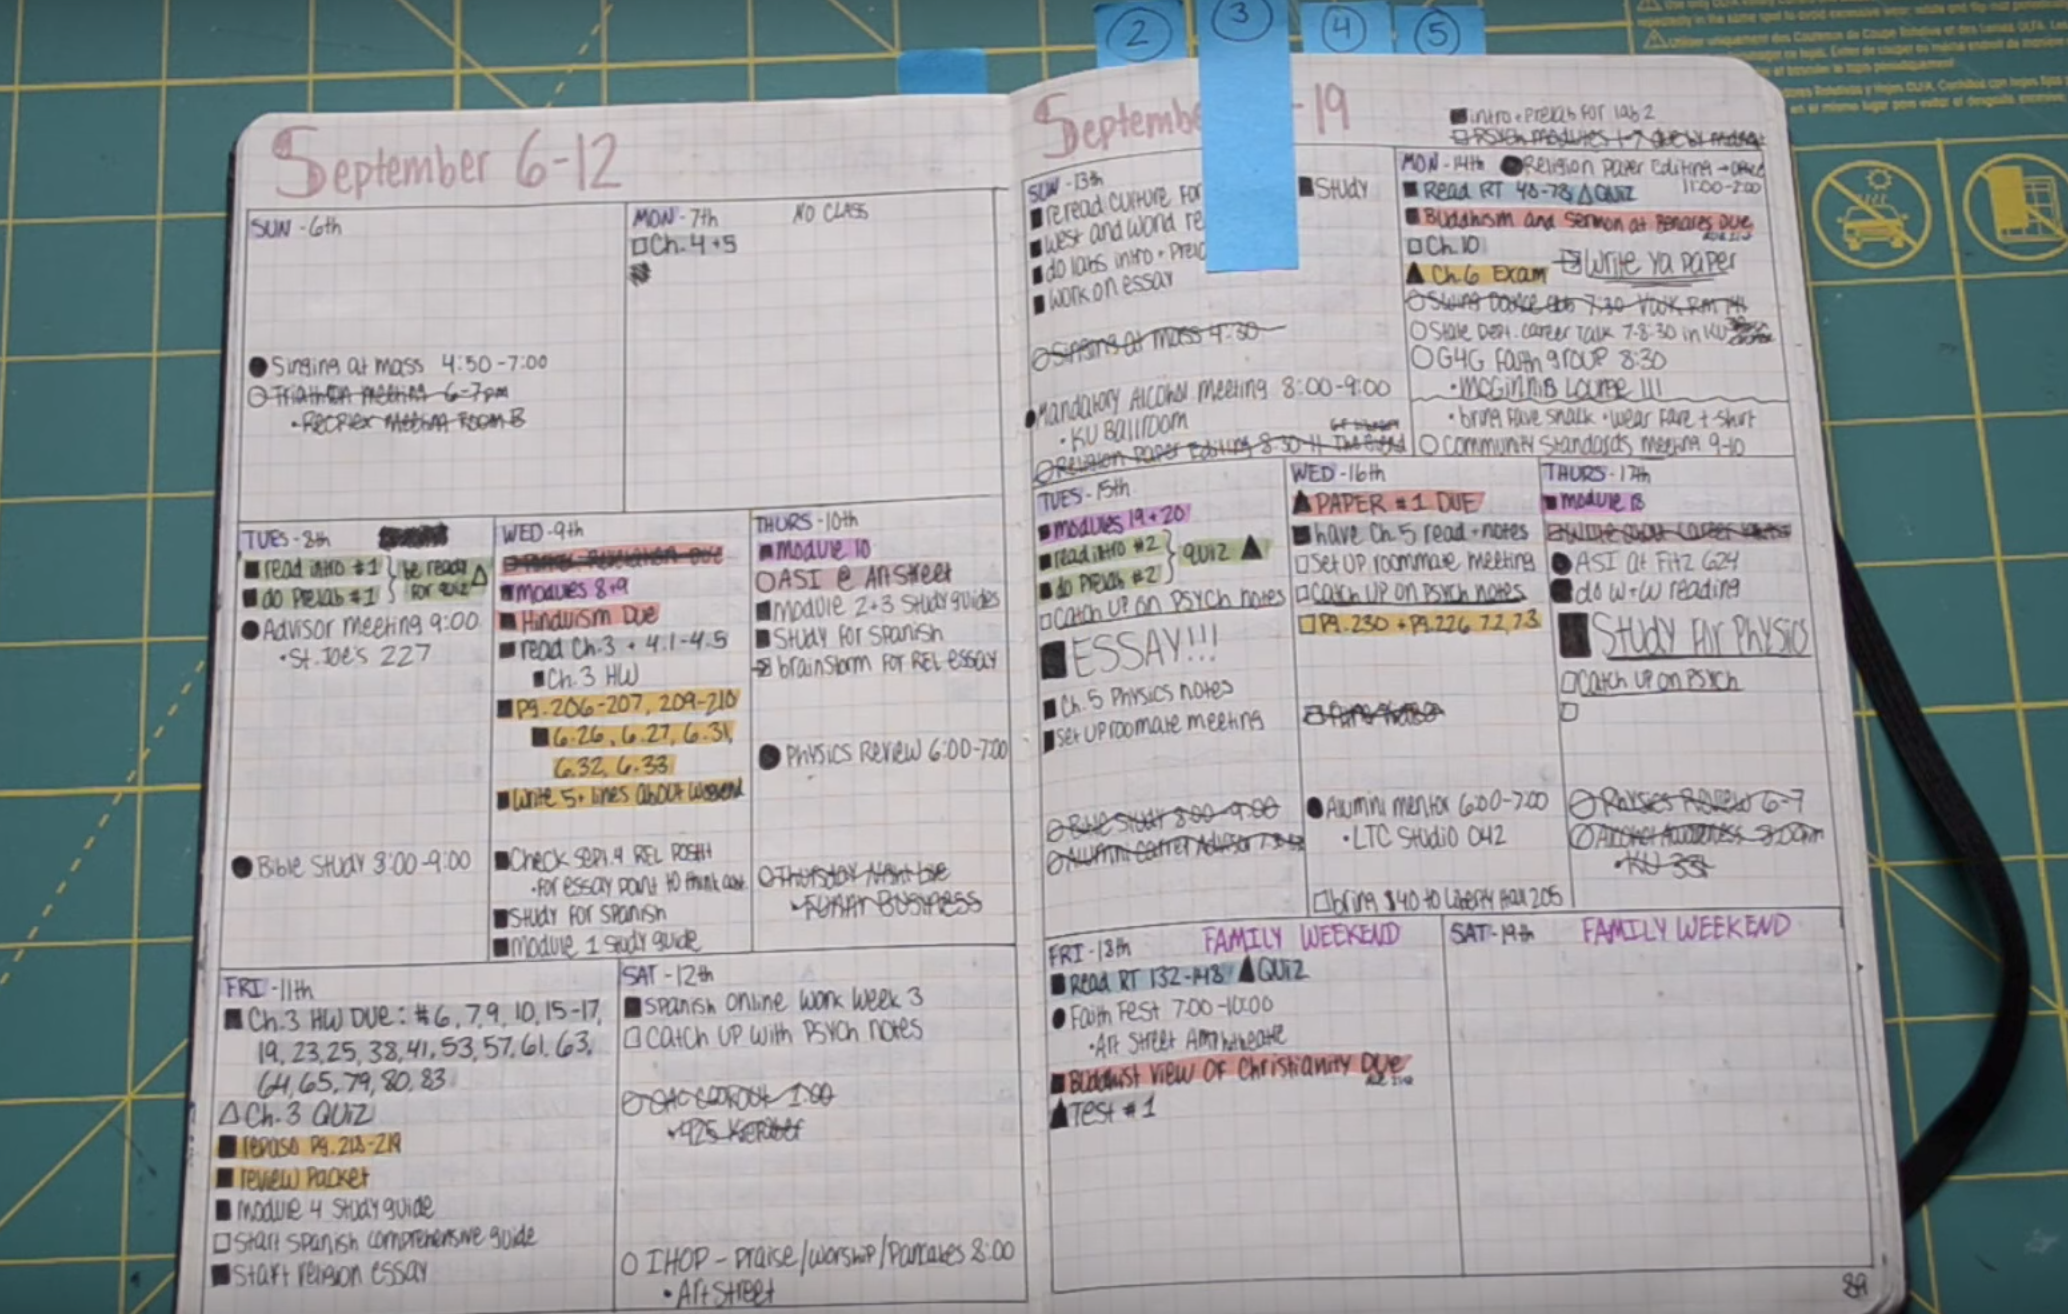 2
3
4
5
September 6-12
SUN - 6th
● Singing at mass 4:50-7:00
○ Triathlon meeting 6-7pm
• RecPlex Meeting Room B
MON - 7th NO CLASS
□ Ch. 4+5
TUES - 8th
■ read intro #1 } be ready △
■ do Prelab #1 } for quiz
● Advisor meeting 9:00
• St. Joe's 227
● Bible Study 8:00-9:00
WED - 9th
Due
■ modules 8+9
■ Hinduism Due
■ read Ch. 3 + 4.1-4.5
■ Ch. 3 HW
■ Pg. 206-207, 209-210
■ 6.26, 6.27, 6.31,
6.32, 6.33
■ Write 5+ lines about weekend
■ Check Sept. 9 REL
• For essay point to think
■ Study for Spanish
■ module 1 Study guide
THURS - 10th
■ module 10
○ ASI @ ArtStreet
■ module 2+3 Study guides
■ Study for Spanish
brainstorm for REL essay
● Physics Review 6:00-7:00
○ Thursday Night Live
BUSINESS
FRI - 11th
■ Ch. 3 HW Due: #6, 7, 9, 10, 15-17,
19, 23, 25, 38, 41, 53, 57, 61, 63,
64, 65, 79, 80, 83
△ Ch. 3 Quiz
■ repaso Pg. 218-219
■ review Packet
■ module 4 Study guide
□ Start Spanish comprehensive guide
■ Start religion essay
SAT - 12th
■ Spanish online work week 3
□ Catch up with Psych notes
1:00
○ IHOP - Praise/Worship/Pancakes 8:00
• Art Street
September -19
■ intro + Prelab for lab 2
□ Psych modules 1-7 due by
SUN - 13th
■ reread culture for
■ West and world re
■ do labs intro +
■ work on essay
■ Study
○ Singing at mass 4:30
● Mandatory Alcohol meeting 8:00-9:00
• KU Ballroom
○ Religion Paper Editing 8:30-11
MON - 14th ● Religion Paper Editing →
11:00-2:00
■ Read RT 48-78 △ QUIZ
■ Buddhism and Sermon at Benares Due
□ Ch. 10
▲ Ch. 6 Exam
Write Ya Paper
○ Swing Dance 7:30
○ State Dept. career Talk 7-8:30 in KU
○ G4G Faith group 8:30
• McGinnis Lounge !!!
• bring fave snack • wear fave t-shirt
○ Community Standards meeting 9-10
TUES - 15th
■ modules 19+20
■ read intro #2 } quiz ▲
■ do Prelab #2 }
□ Catch up on Psych notes
■ ESSAY!!!
■ Ch. 5 Physics notes
■ set up roomate meeting
○ Bible Study 8:00-9:00
○ Alumni Career Advisor
WED - 16th
▲ PAPER #1 DUE
■ have Ch. 5 read + notes
□ Set up roommate meeting
□ Catch up on Psych notes
□ Pg. 230 + Pg. 226 7.2, 7.3
● Alumini mentor 6:00-7:00
• LTC Studio 042
□ bring $40 to Liberty Hall 205
THURS - 17th
■ module 18
● ASI at Fitz 624
● do W+W reading
■ Study for Physics
□ Catch up on Psych
□
○ Physics Review 6-7
○ Alcohol Awareness
• KU 331
FRI - 18th FAMILY WEEKEND
■ Read RT 132-148 ▲ QUIZ
● Faith Fest 7:00-10:00
• Art Street Amphitheatre
■ Buddhist View of Christianity Due
▲ Test #1
SAT - 19th FAMILY WEEKEND
89